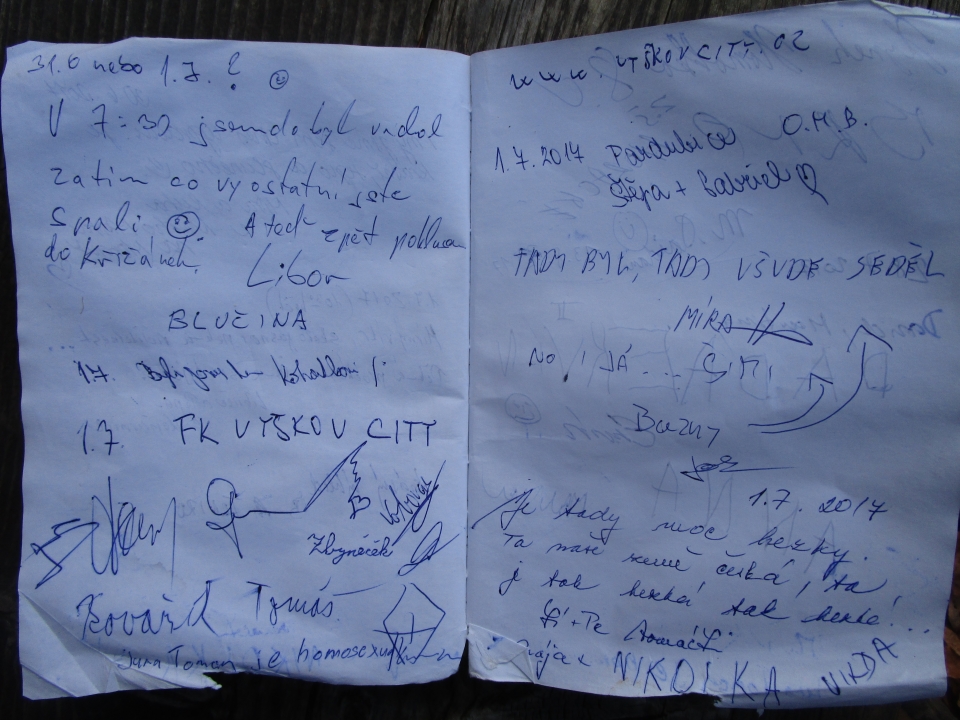 31.6 nebo 1.7. ? ☺
V 7:30 jsem dobyl vrchol
zatím co vy ostatní jste
spali ☺ A teď zpět
do Křižánek.
Libor
BLUČINA
1.7.
1.7. FK VYŠKOV CITY
Zbyněček
Kovařík Tomáš
je homosexuál
www. VYŠKOVCITY.CZ
1.7.2017 Pardubice O.H.B.
Štěpa + Gabriel ♡
TADY BYL, TADY VŠUDE SEDĚL
MÍRA
NO I JÁ...
1.7. 2017
Je tady moc hezky.
Ta naše země česká, ta
je tak hezká tak hezká!...
NIKOLKA